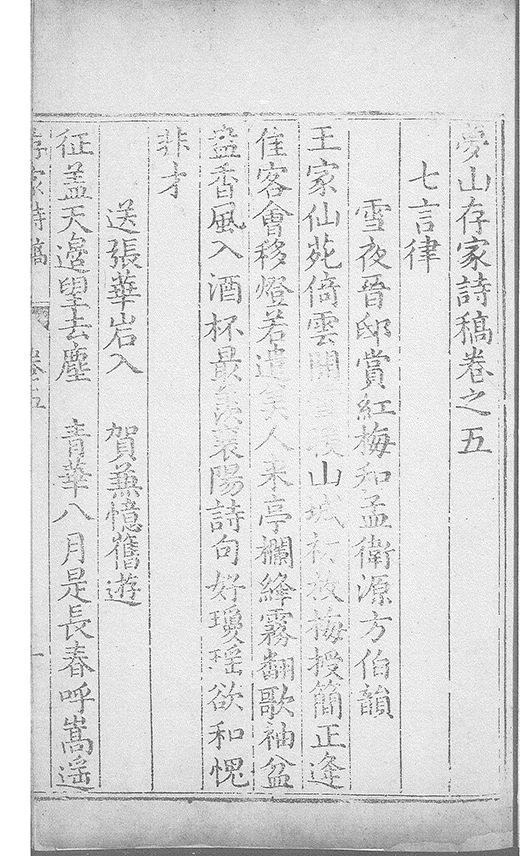 夢山存家詩稿卷之五
七言律
雪夜晉邸賞紅梅和孟衛源方伯韻
王家仙苑倚雲開雪殘山城初放梅授簡正逢
佳客會移燈若遣美人来亭欄絳霧翻歌袖盆
盎香風入酒杯最羡襄陽詩句好瓊瑤欲和愧
非才
送張華岩入 賀兼憶舊遊
征蓋天邊望去塵 青華八月是長春呼嵩遥
存家詩稿 卷五 一